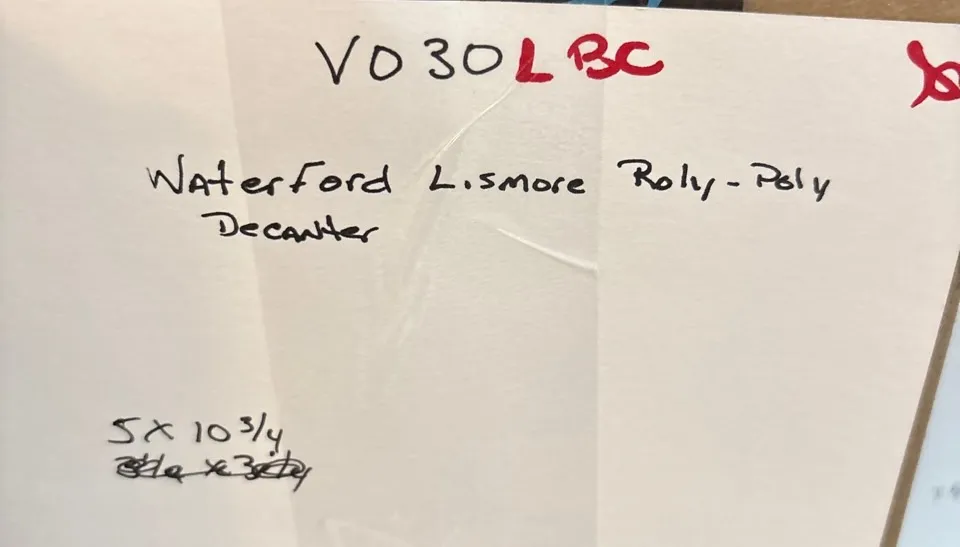 VO30LBC
Waterford Lismore Roly-Poly
Decanter
5 x 10 3/4